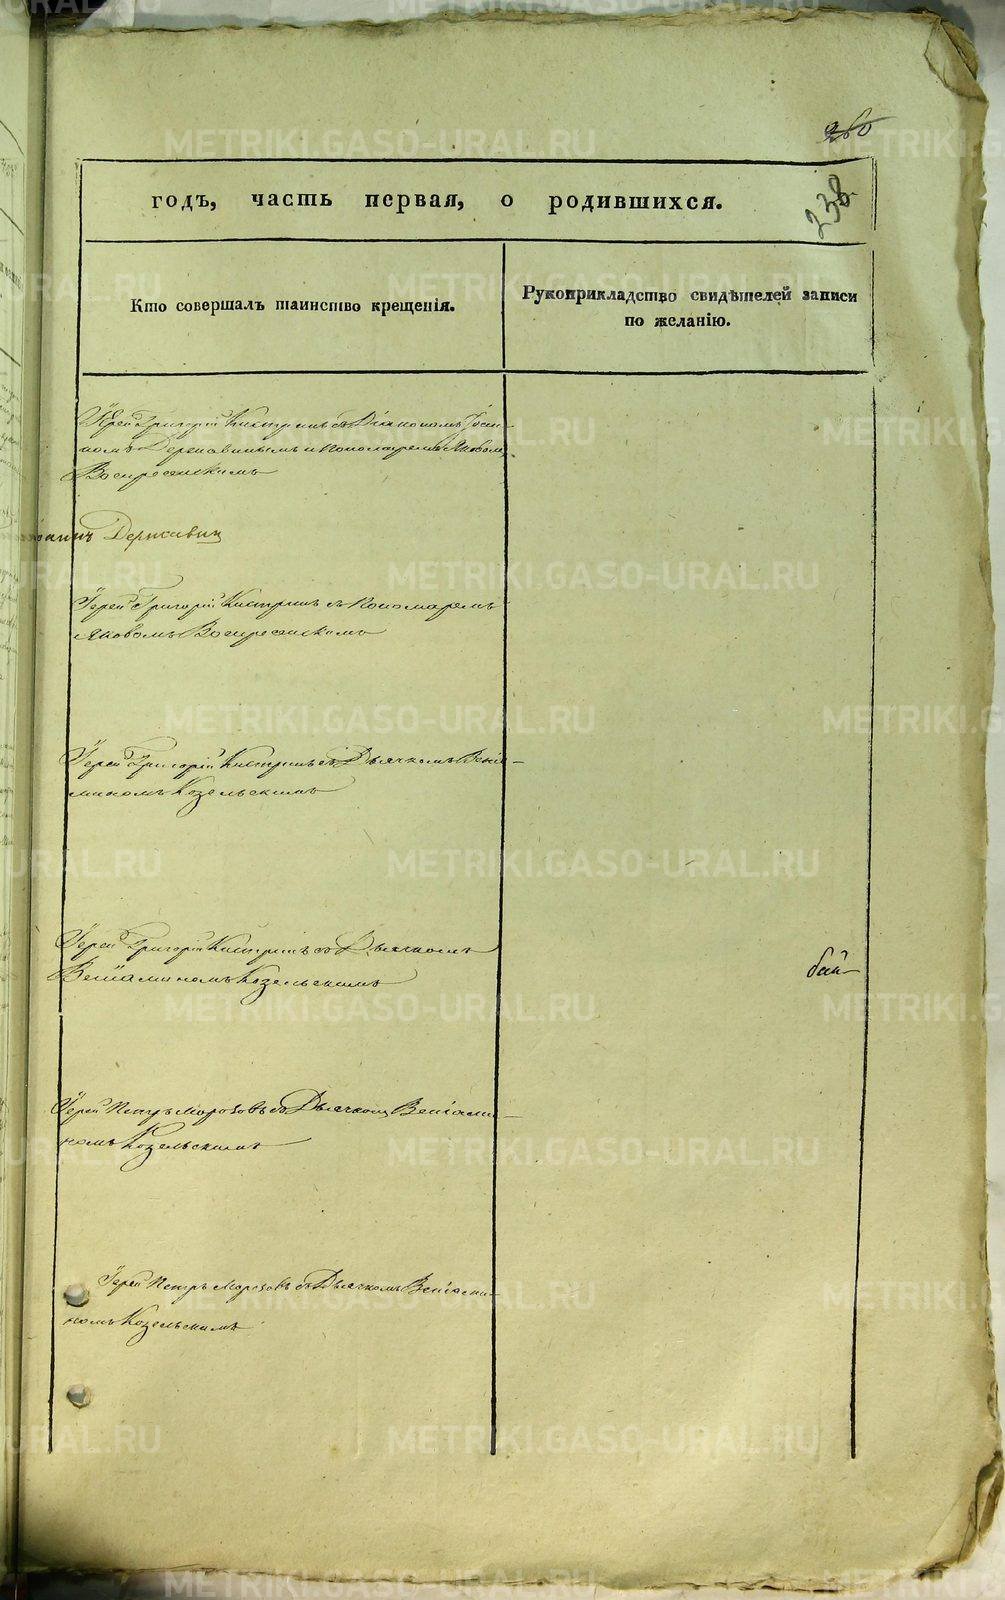 260
238.
годъ, часть первая, о родившихся.
Кто совершалъ таинство крещенія.
Рукоприкладство свидѣтелей записи
по желанію.
Іерей Григорій с Діакономъ
Державинымъ и Пономаремъ Яковомъ
Воскресенскимъ
Державин
Іерей Григорій с Пономаремъ
Яковомъ Воскресенскимъ
Іерей Григорій с Дьячкомъ Веніа-
миномъ Козельскимъ
Іерей Григорій с Дьячкомъ
Веніаминомъ Козельскимъ
Іерей Петръ Морозовъ с Дьячкомъ Веніами-
номъ Козельскимъ
Іерей Петръ Морозовъ с Дьячкомъ Веніами-
номъ Козельскимъ
METRIKI.GASO-URAL.RU